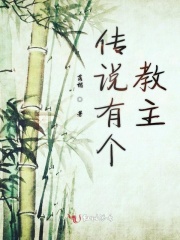 传说有个
教主
著